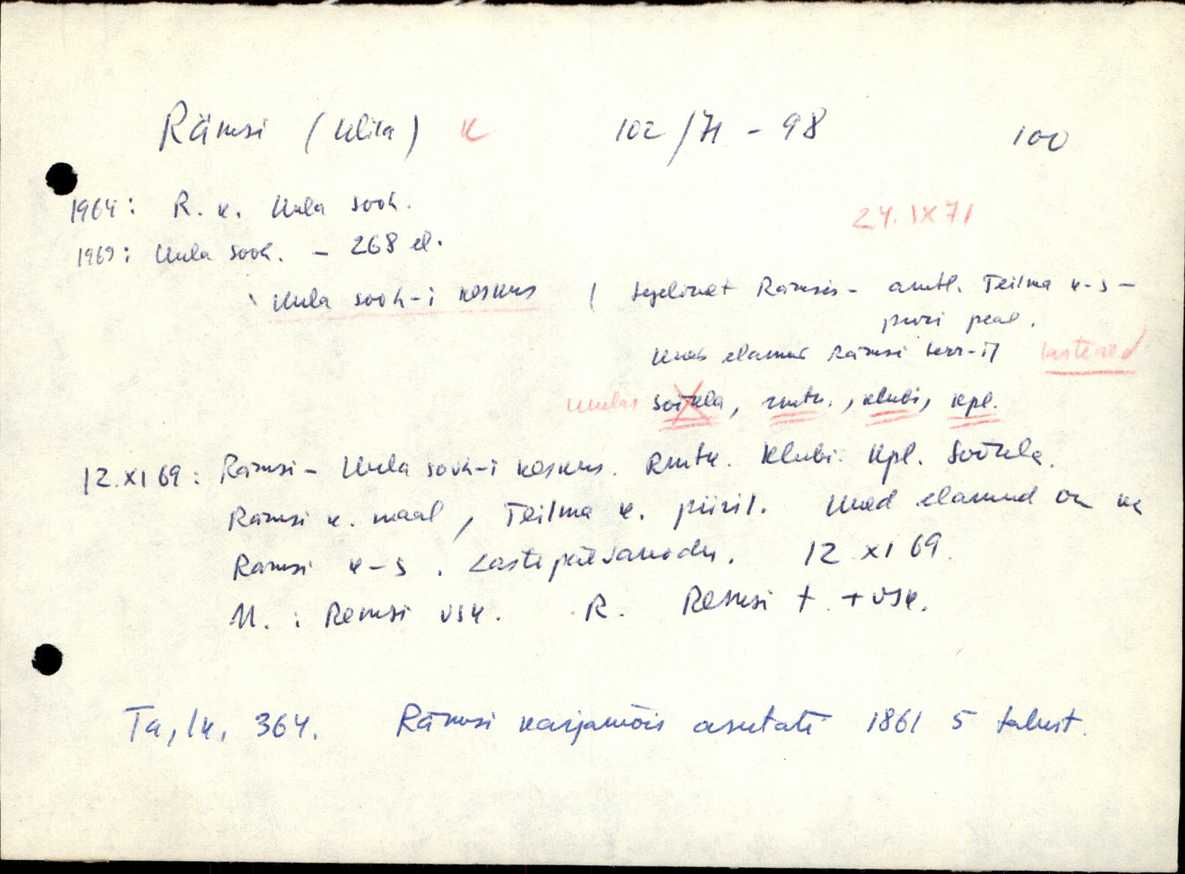 Rämsi (Ulila) K 102/71 - 98 100
1964: R. k. Uula sovh.
24.IX 71
1969: Uula sovh. - 268 el.
Uula sovh-i keskus ( tegelikult Rämsis - amtl. Teilma k-s -
piiri peal.
Uued elamud Rämsi terr-il lasteaed
söökla, rmtk., klubi, kpl.
12.XI 69: Rämsi - Uula sovh-i keskus. Rmtk. Klubi. Kpl. Söökla.
Rämsi k. maal, Teilma k. piiril. Uued elamud on ka
Rämsi k-s. Lastepäevakodu. 12.XI 69.
M. : Remsi vsk. R. Remsi t. + vsk.
Ta, lk. 364. Rämsi karjamõis asutati 1861 5 talust.